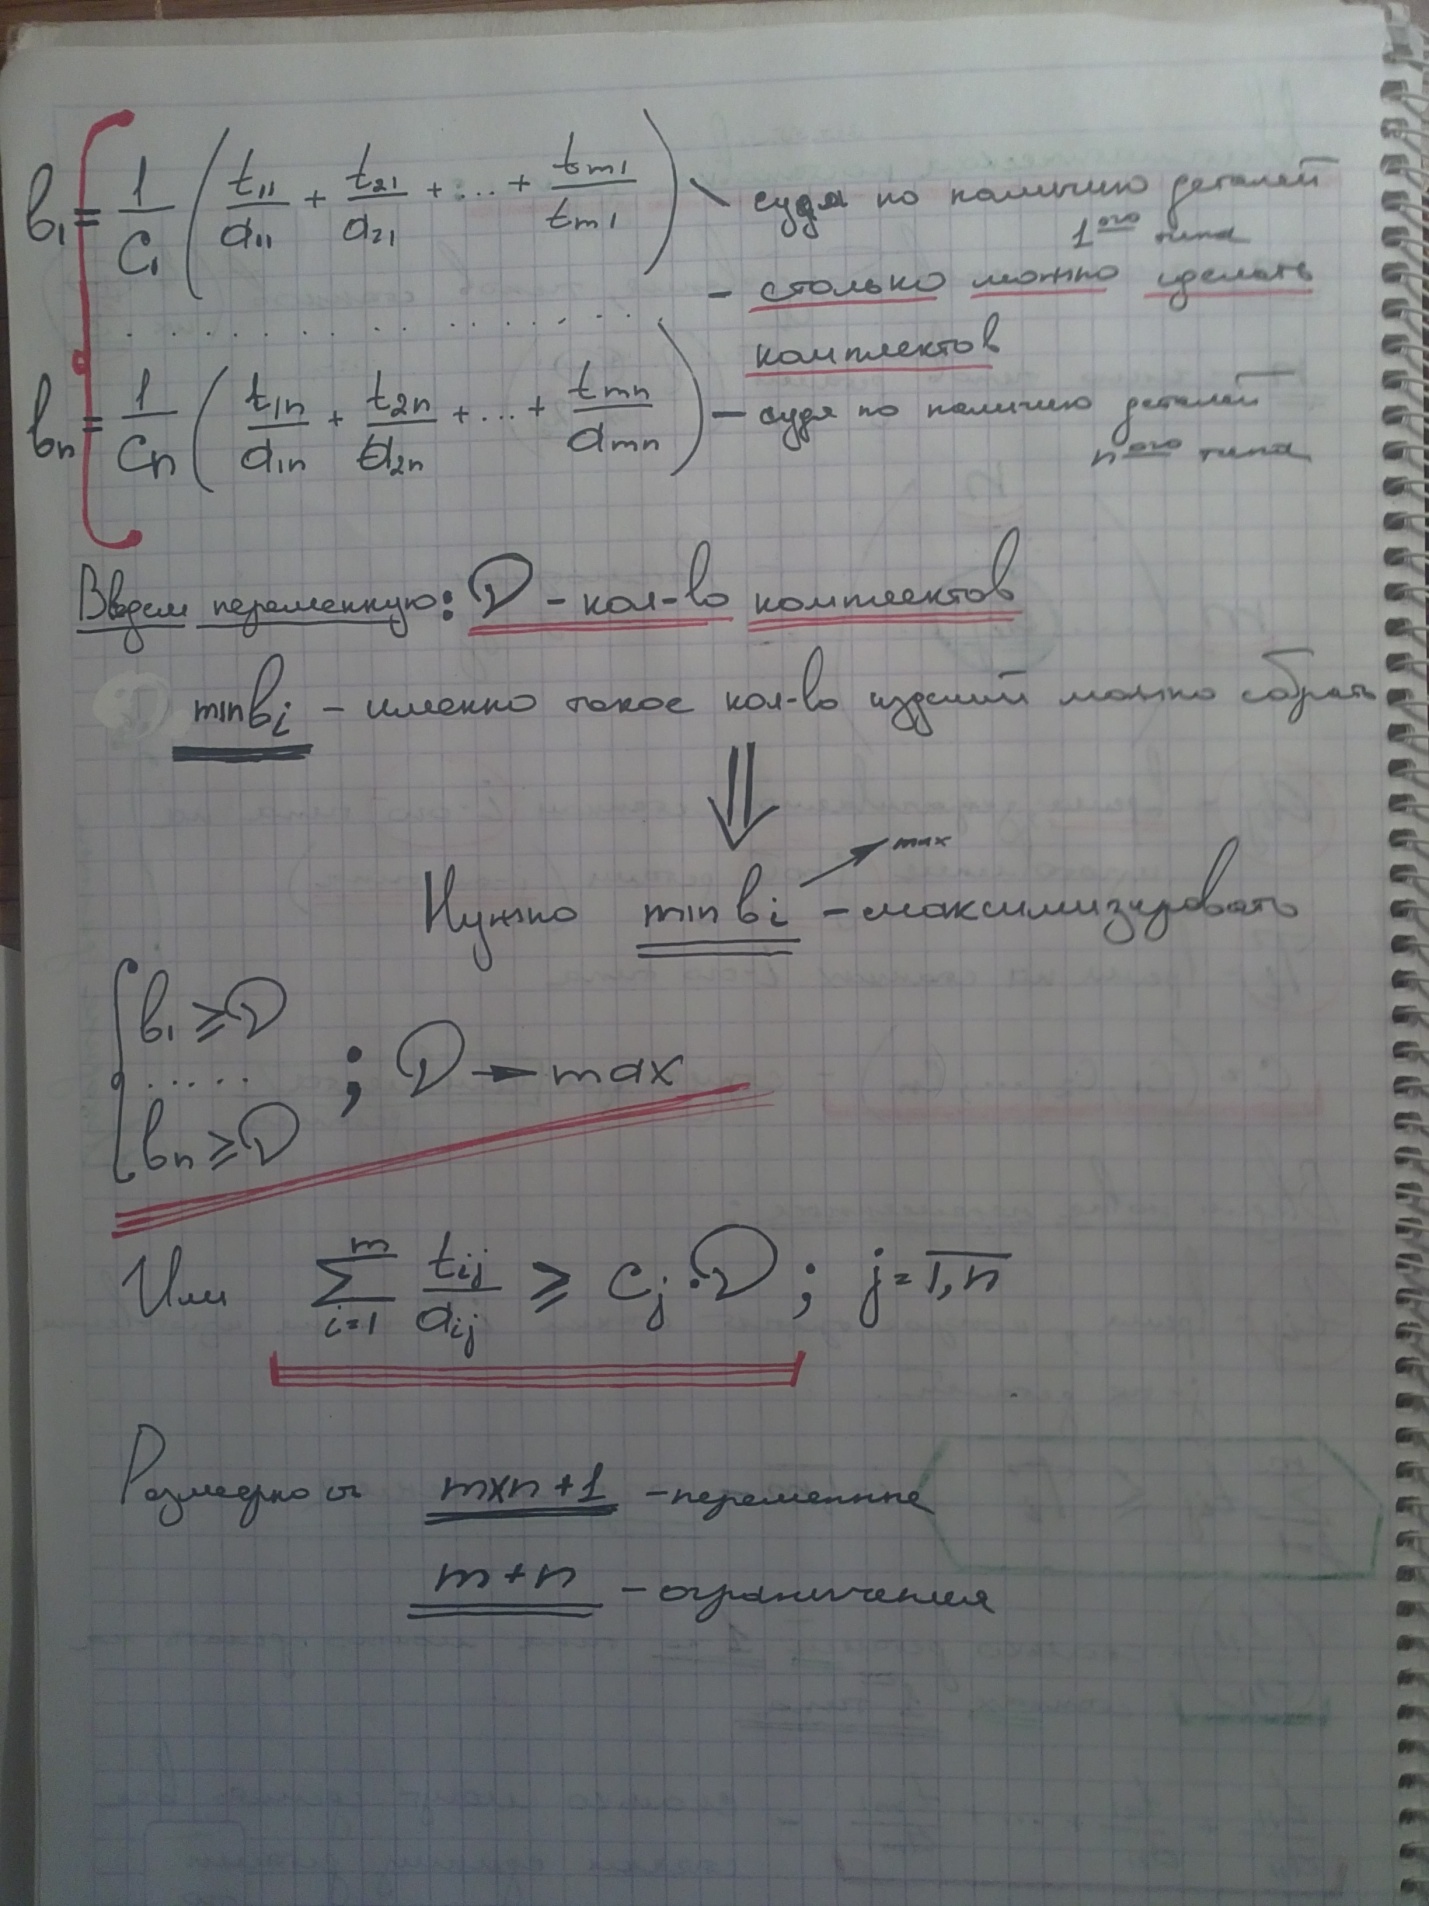 в₁ = 1/C₁ (t₁₁/a₁₁ + t₂₁/a₂₁ + ... + tm1/tm1) – судя по наличию деталей
1ого типа
– столько можно сделать
комплектов
. . . . . . . . . . . . . . . .
вn = 1/Cn (t1n/a1n + t2n/a2n + ... + tmn/amn) – судя по наличию деталей
nого типа
Введем переменную: D – кол-во комплектов
min вi – именно такое кол-во изделий можно собрать
⇓
max
Нужно min вi – максимизировать
{ в₁ ≥ D
..... ; D → max
вn ≥ D
Или ∑_{i=1}^{m} tij/aij ≥ cj · D ; j = 1,n
Размерность m×n+1 – переменные
m+n – ограничения